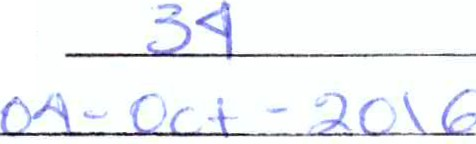 34
04-Oct-2016